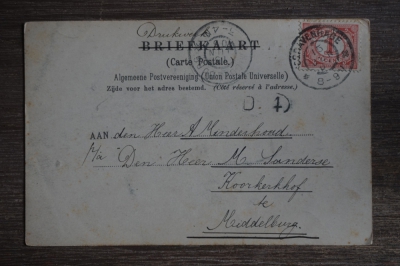 Drukwerk
BRIEFKAART
(Carte Postale.)
Algemeene Postvereeniging (Union Postale Universelle)
Zijde voor het adres bestemd. (Côté réservé à l'adresse.)
1
D. 4
AAN den Heer A Menderhoud
p/a Den Heer M. Sanderse
Koorkerkhof
te
Middelburg.